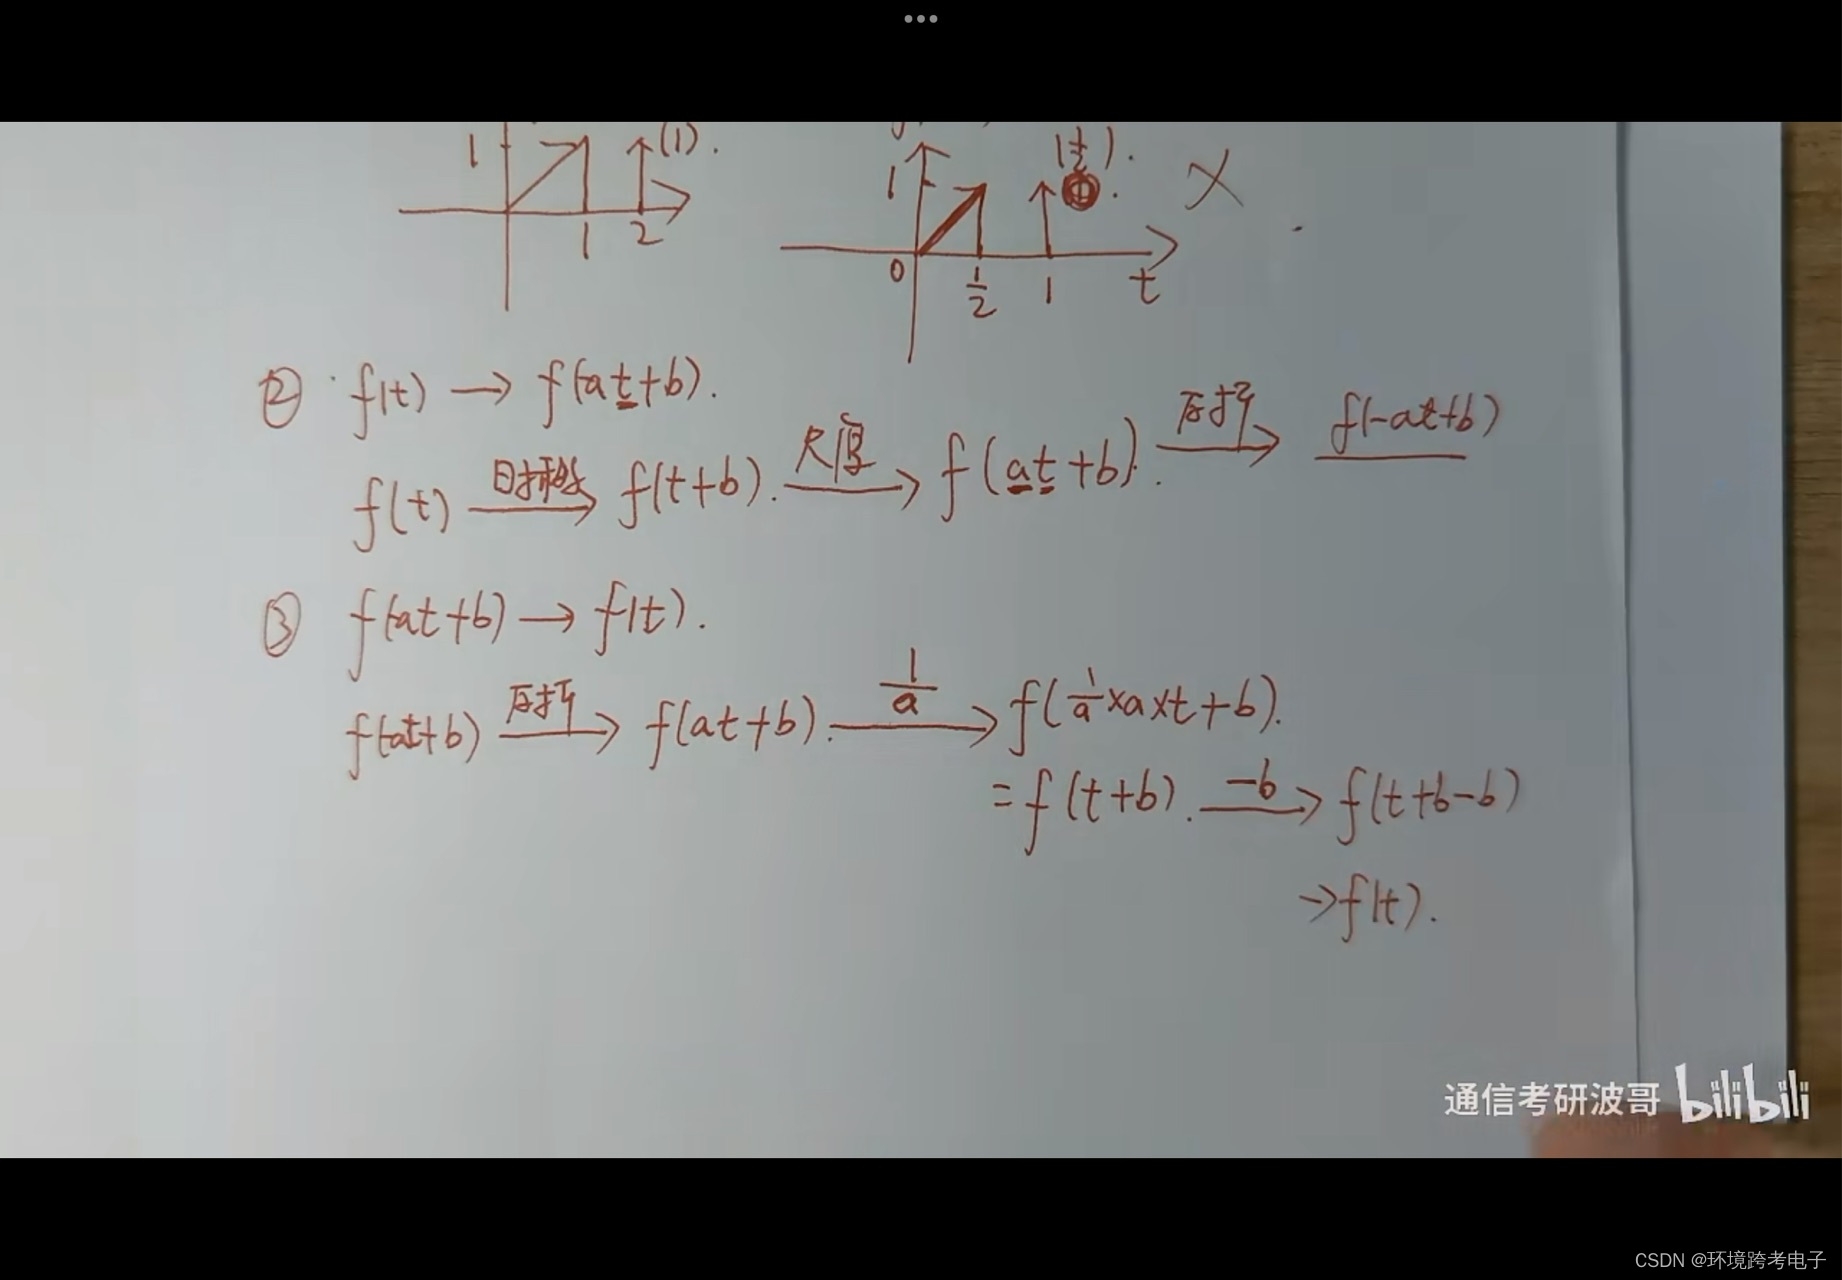 1 (1).
1 2
1 (½). ×
0 ½ 1 t
② f(t) → f(at+b).
f(t) 时移→ f(t+b). 尺度→ f(at+b). 反折→ f(-at+b)
③ f(-at+b) → f(t).
f(-at+b) 反折→ f(at+b). 1/a→ f(1/a×a×t+b).
= f(t+b). -b→ f(t+b-b)
→f(t).
通信考研波哥 bilibili
CSDN @环境跨考电子